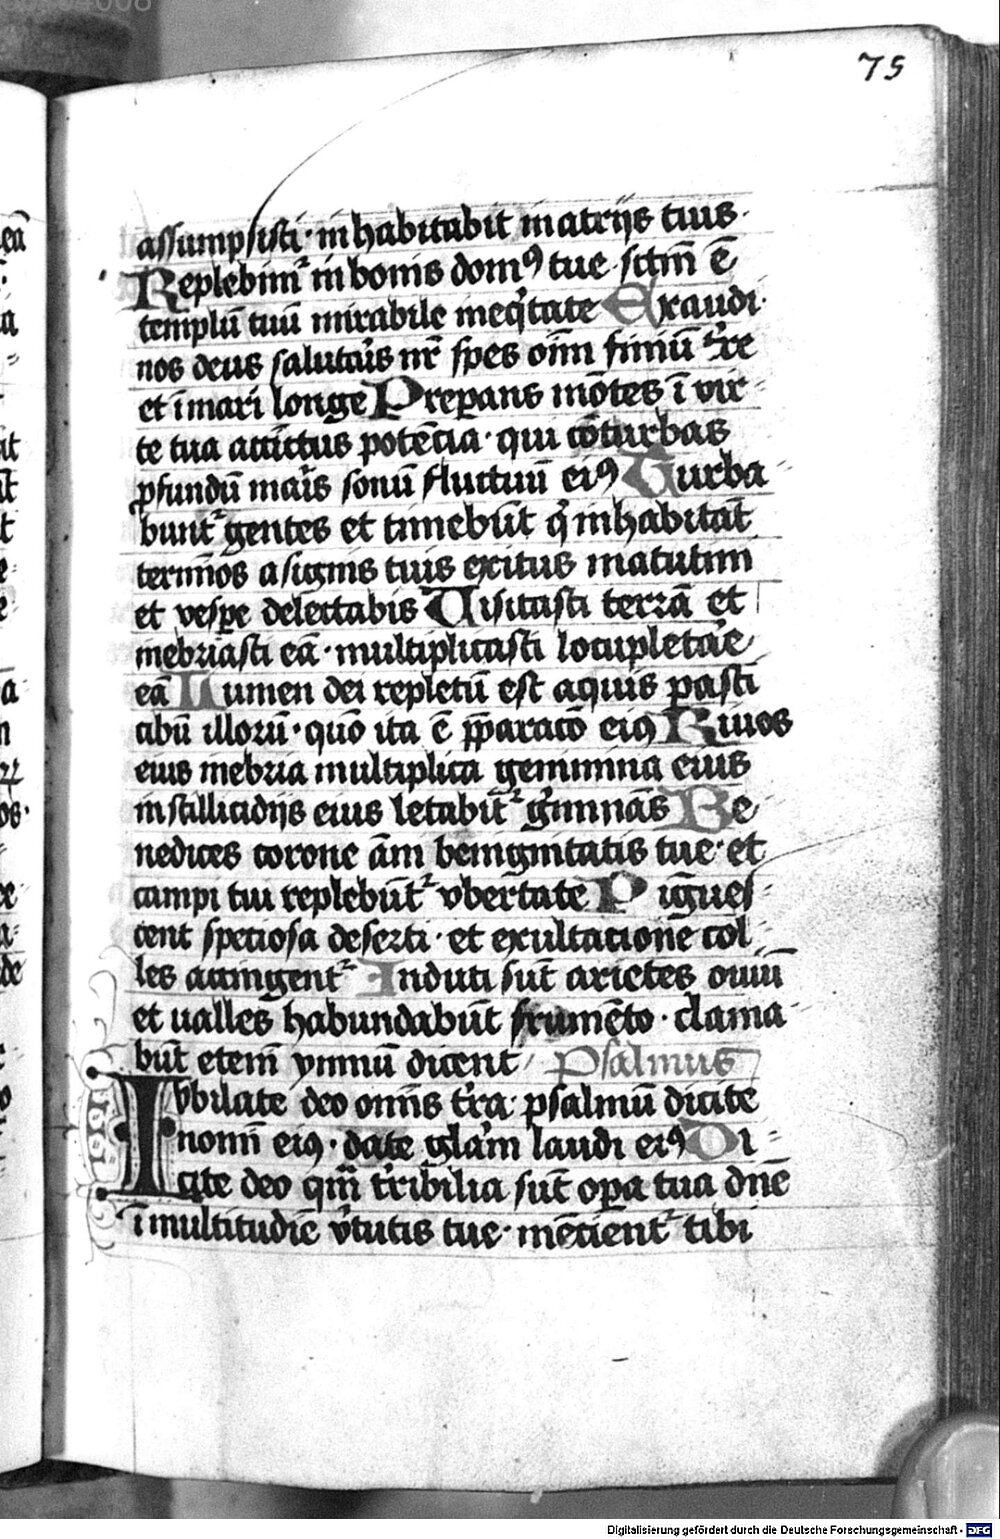 75
assumpsisti · inhabitabit in atrijs tuis ·
Replebimꝰ in bonis domꝯ tue · sctm̄ ē
templū tuū mirabile in eqͥtate Exaudi ·
nos deus salutaͥs nr̄ spes oīm finiū tͬre
et ī mari longe Preparans mōtes ī vir-
te tua accīctus potēcia · qui cōturbas
ꝓfundū maͥs sonū fluctuū eiꝯ Turba-
bunt᷑ gentes et timebūt qͥ inhabitāt
termīos a signis tuis exitus matutini
et vespe delectabis Uisitasti terrā et
inebriasti eā · multiplicasti locupletaͤe
eā Flumen dei repletū est aquis pasti
cibū illorū · quō ita ē p̄paracō eiꝯ Riuos
eius inebria multiplica genimina eius
in stillicidijs eius letabit᷑ gͤminās Be
nedices corone ām benignitatis tue · et
campi tui replebūt᷑ vbertate Pīgues-
cent speciosa deserti · et exultacione col
les accingent᷑ Induti sūt arietes ouiū
et ualles habundabūt frumēto · clama-
būt etem̄ ymnū dicent Psalmus
Iubilate deo omīs tͬra psalmū dicite
nomī eiꝯ · date glaͣm laudi eiꝯ Di
cite deo qm̄ tͬribilia sūt oꝑa tua dn̄e
ī multitudīe vͬtutis tue · mēcient᷑ tibi
Digitalisierung gefördert durch die Deutsche Forschungsgemeinschaft - DFG